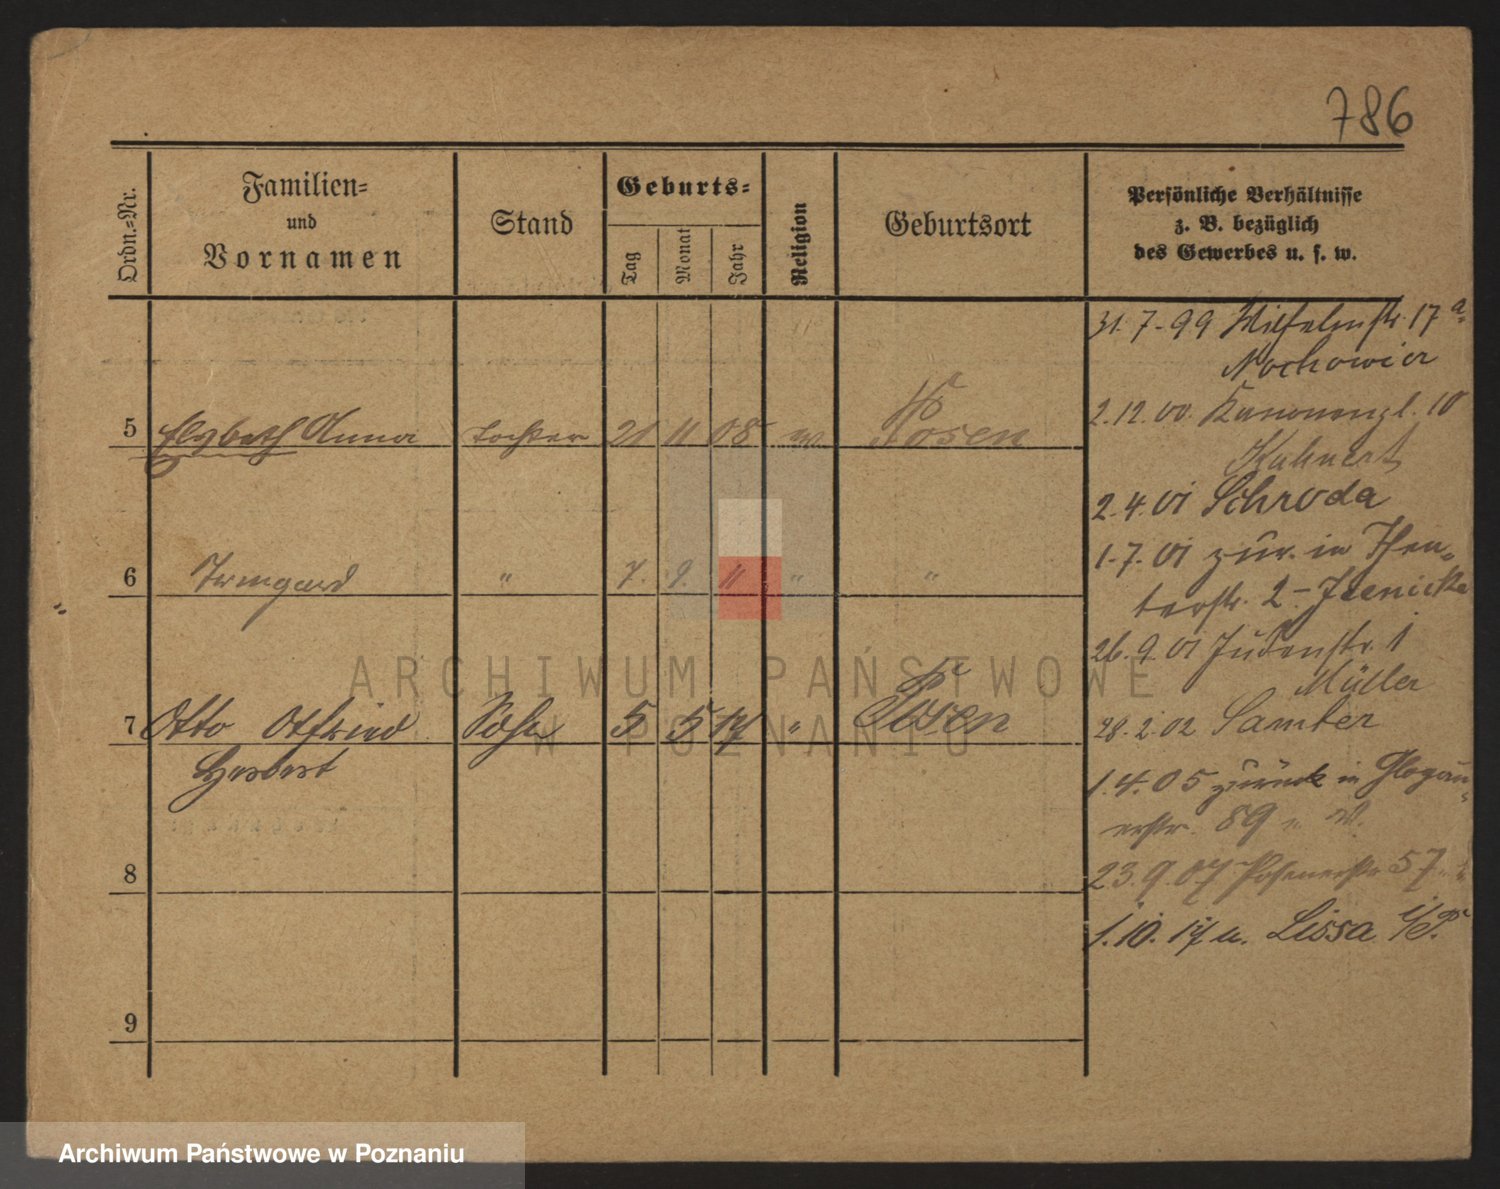 786
Ordn.-Nr.
Familien-
und
Vornamen
Stand
Geburts-
Tag
Monat
Jahr
Religion
Geburtsort
Persönliche Verhältnisse
z. B. bezüglich
des Gewerbes u. s. w.
5 Elsbeth Anna Tochter 21 11 08 Posen
6 Irmgard " 7. 9. 11 " "
7 Otto Otfried Sohn 5 5 17 " Posen
Herbert
8
9
31. 7. 99 Wilhelmstr. 17a
Nochowicz
2. 12. 00. Kanonenpl. 10
Kuhnert
2. 4. 01 Schroda
1. 7. 01 zur. in Thea-
terstr. 2 - Jaenicke
26. 9. 01 Judenstr. 1
Müller
28. 2. 02 Samter
1. 4. 05 zurück in Glogau-
erstr. 89
23. 9. 07 Posenerstr 57
1. 10. 17 n. Lissa i/P.
ARCHIWUM PAŃSTWOWE
W POZNANIU
Archiwum Państwowe w Poznaniu